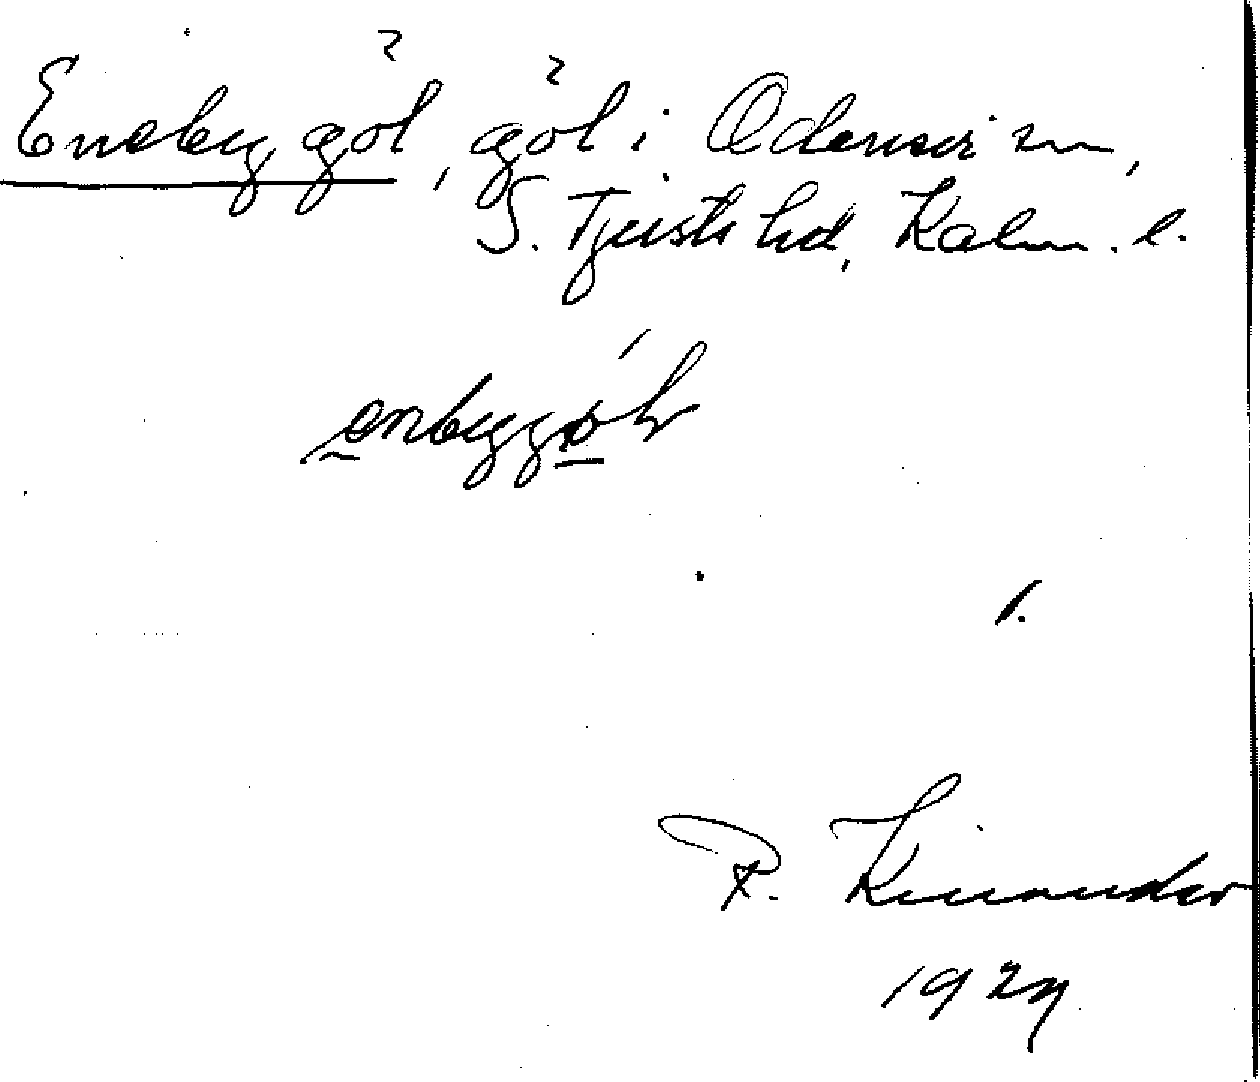 Eneby göl, göl i Odensvi sn,
S. Tjusts hd, Kalm. l.
enbyggöl
1.
R. Kinander
1927